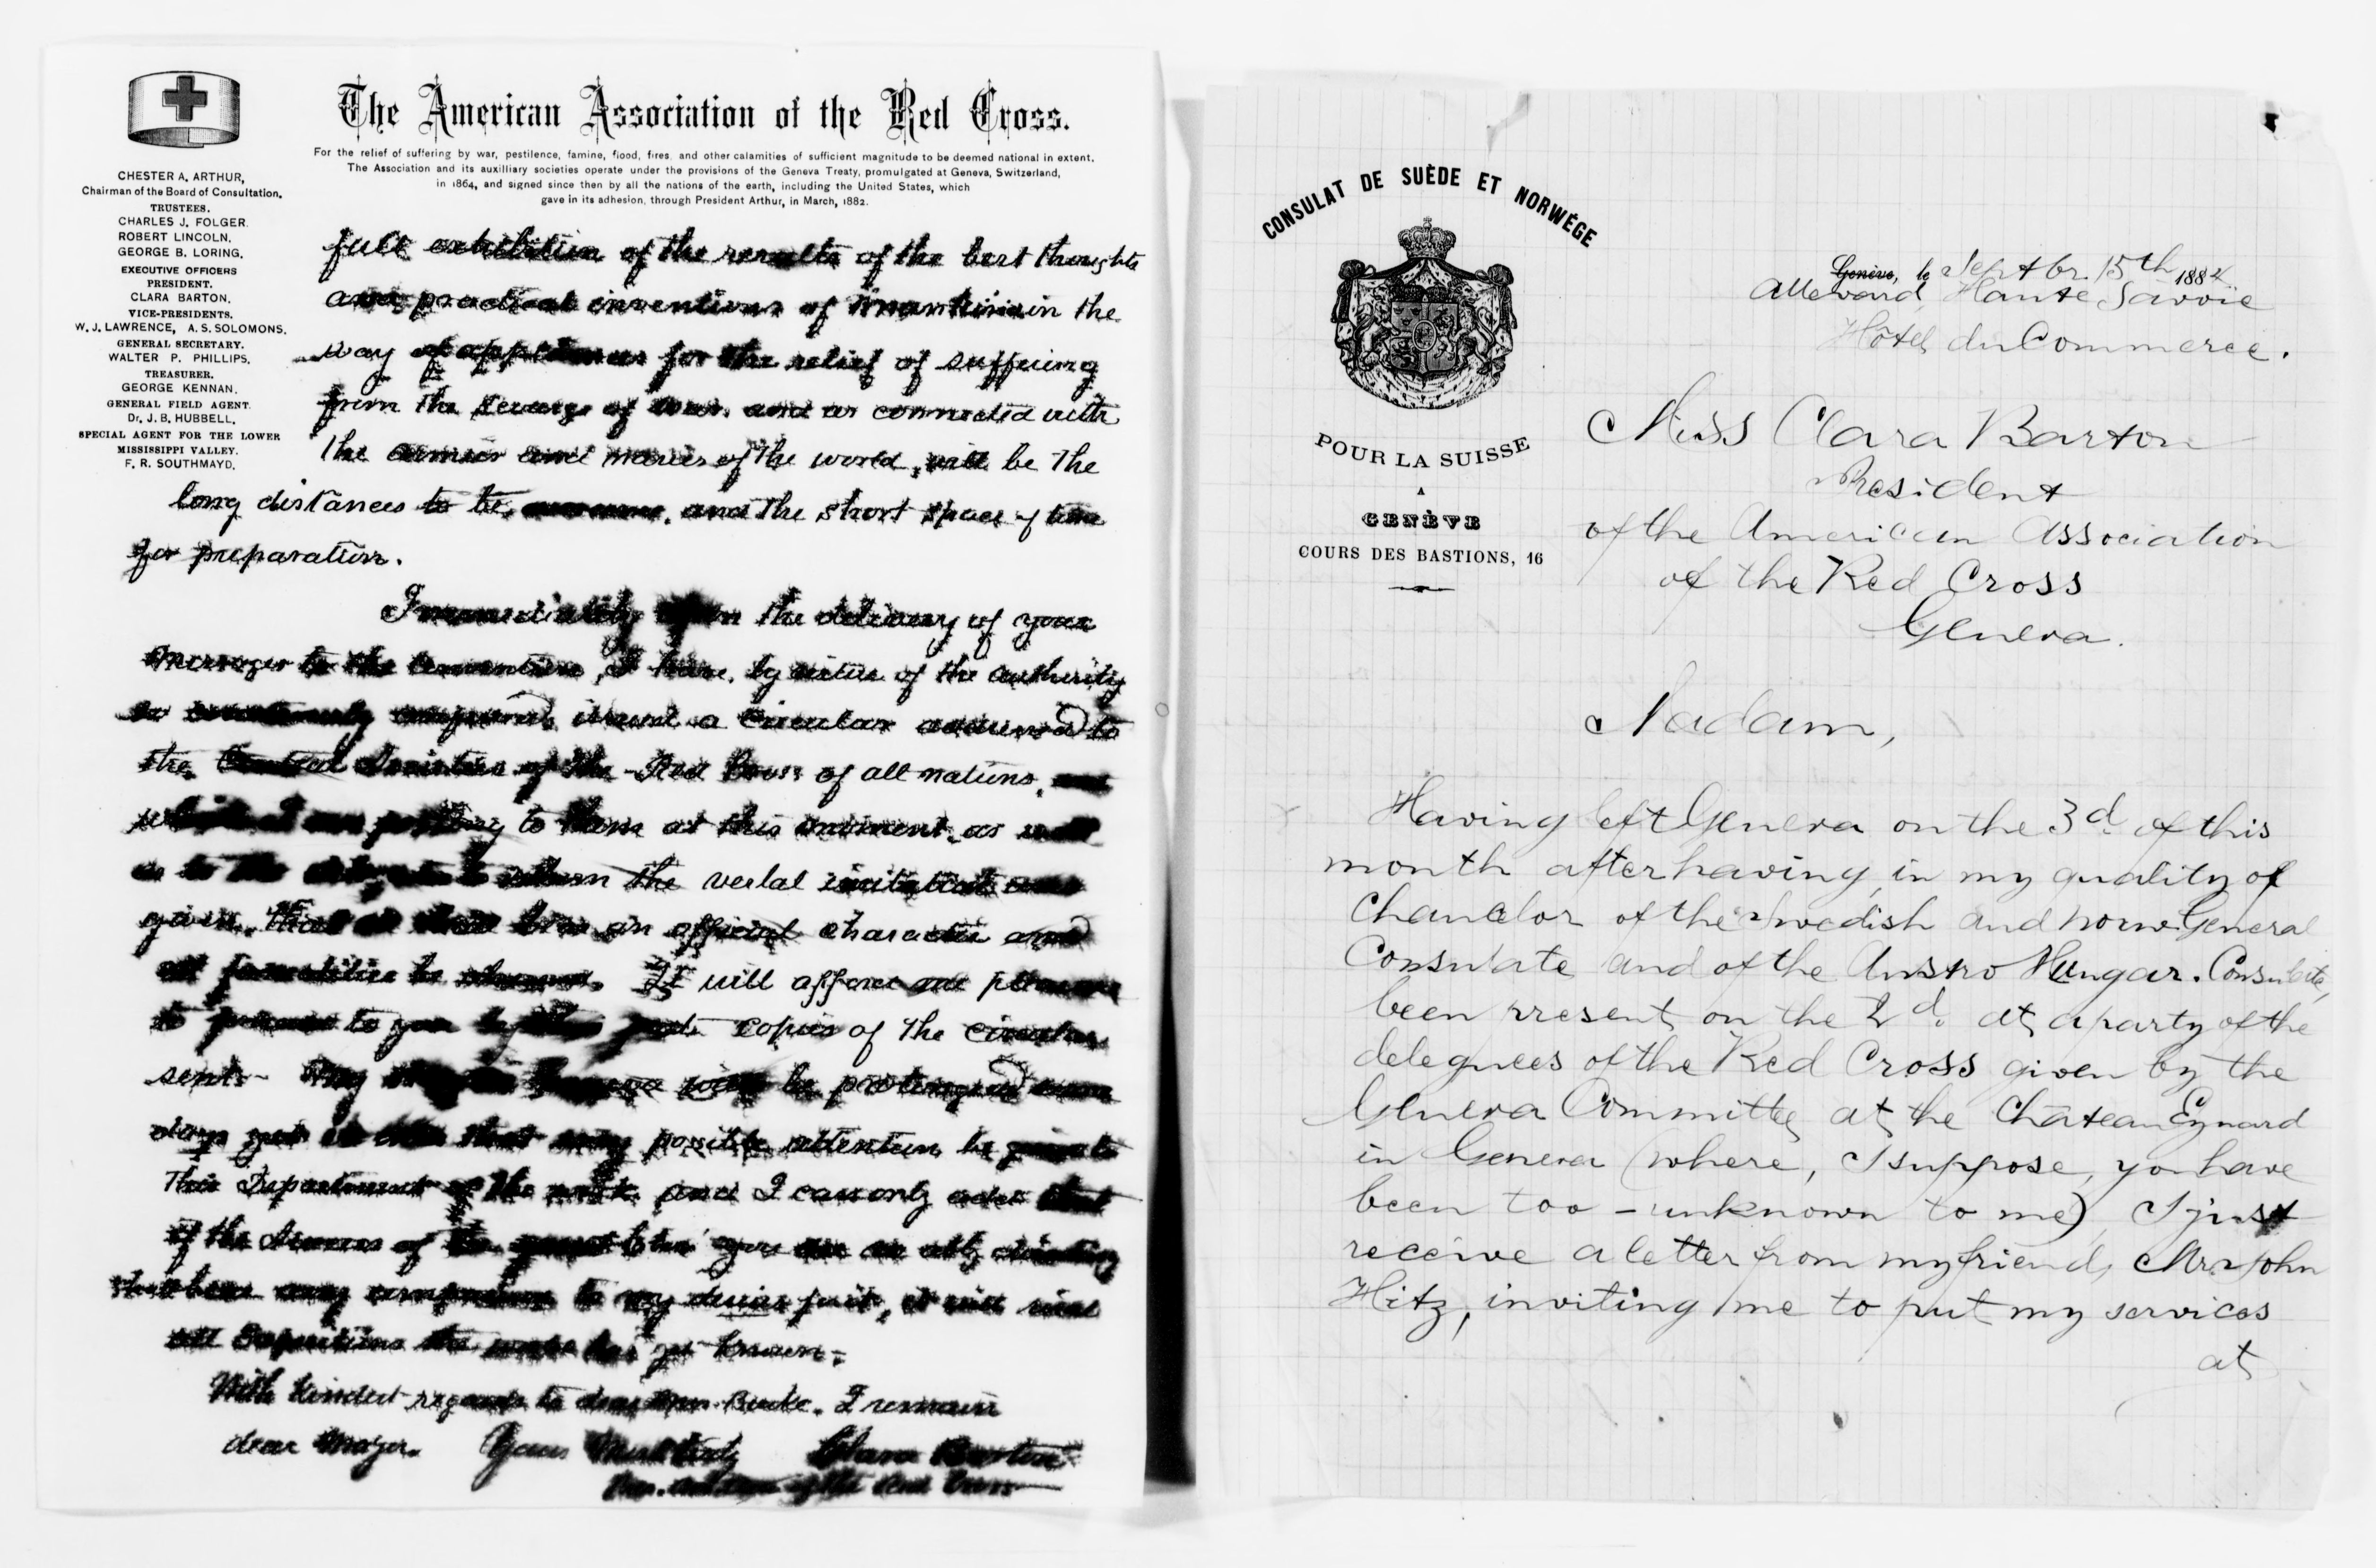 The American Association of the Red Cross.
For the relief of suffering by war, pestilence, famine, flood, fires, and other calamities of sufficient magnitude to be deemed national in extent.
The Association and its auxilliary societies operate under the provisions of the Geneva Treaty, promulgated at Geneva, Switzerland,
in 1864, and signed since then by all the nations of the earth, including the United States, which
gave in its adhesion, through President Arthur, in March, 1882.
CHESTER A. ARTHUR,
Chairman of the Board of Consultation.
TRUSTEES.
CHARLES J. FOLGER.
ROBERT LINCOLN.
GEORGE B. LORING.
EXECUTIVE OFFICERS
PRESIDENT.
CLARA BARTON.
VICE-PRESIDENTS.
W. J. LAWRENCE, A. S. SOLOMONS.
GENERAL SECRETARY.
WALTER P. PHILLIPS.
TREASURER.
GEORGE KENNAN.
GENERAL FIELD AGENT.
Dr. J. B. HUBBELL.
SPECIAL AGENT FOR THE LOWER
MISSISSIPPI VALLEY.
F. R. SOUTHMAYD.
full exhibition of the results of the best thoughts
and practical inventions of mankind in the
way of appliances for the relief of suffering
from the scourge of war, and as connected with
the armies and navies of the world, will be the
long distances to be overcome, and the short space of time
for preparation.
Immediately upon the delivery of your
messages to the convention, I have, by virtue of the authority
issued a circular addressed to
the Central Societies of the Red Cross of all nations,
to them at this moment, as well
as to the the verbal
given, an official character and
all formalities be observed. It will afford me pleasure
to to you copies of the circular
sent. will be prolonged some
days yet possible attention be given to
this Department of the work, and I can only add that
if the success of the you are so ably directing
shall bear any comparison to my desire for it, it will rival
all Expositions the world has yet known.
With kindest regards to dear Mrs. Burke. I remain
dear Major. Yours Clara Barton
of the Red Cross
CONSULAT DE SUÈDE ET NORWÉGE
POUR LA SUISSE
A
GENÈVE
COURS DES BASTIONS, 16
Genève, le Septbr. 15th 1884
Allevard, Haute Savoie
Hôtel du Commerce.
Miss Clara Barton
President
of the American Association
of the Red Cross
Geneva.
Madam,
Having left Geneva on the 3d. of this
month after having, in my quality of
Chancelor of the Swedish and norw. General
Consulate and of the Austro Hungar. Consulate,
been present on the 2d. at a party of the
delegnees of the Red Cross given by the
Geneva Committee at the Château Eynard
in Geneva (where, I suppose, you have
been too - unknown to me), I just
receive a letter from my friend, Mr. John
Hitz, inviting me to put my services
at